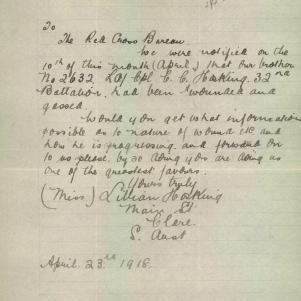 To
The Red Cross Bureau
We were notified on the
10th of this month (April) that our brother
No 2632 L/Cpl C. C. Hosking. 32nd
Battalion. had been wounded and
gassed.
Would you get what information
possible as to nature of wound etc and
how he is progressing. and forward on
to us please, by so doing you are doing us
one of the greatest favours.
Yours truly
(Miss) Lilian Hosking
Main St
Clare.
S. Aust
April 23rd 1918.